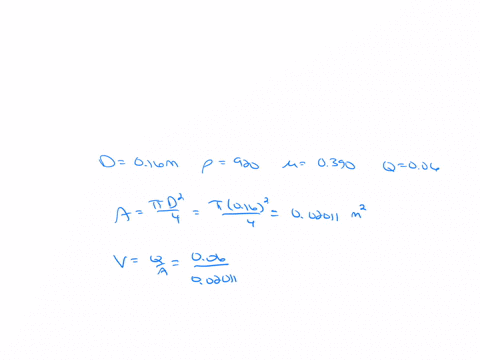 D = 0.16m ρ = 920 μ = 0.390 Q = 0.06
A = πD²/4 = π(0.16)²/4 = 0.02011 m²
V = Q/A = 0.06/0.02011